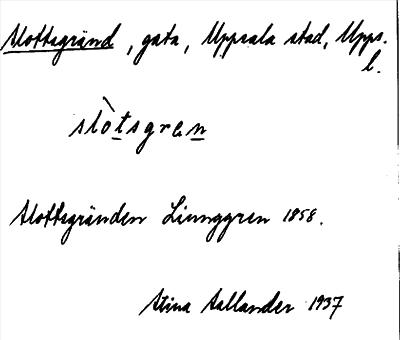 Slottsgränd, gata, Uppsala stad, Upps.
l.
slòtsgren
Slottsgränden Ljunggren 1858.
Stina Sallander 1937